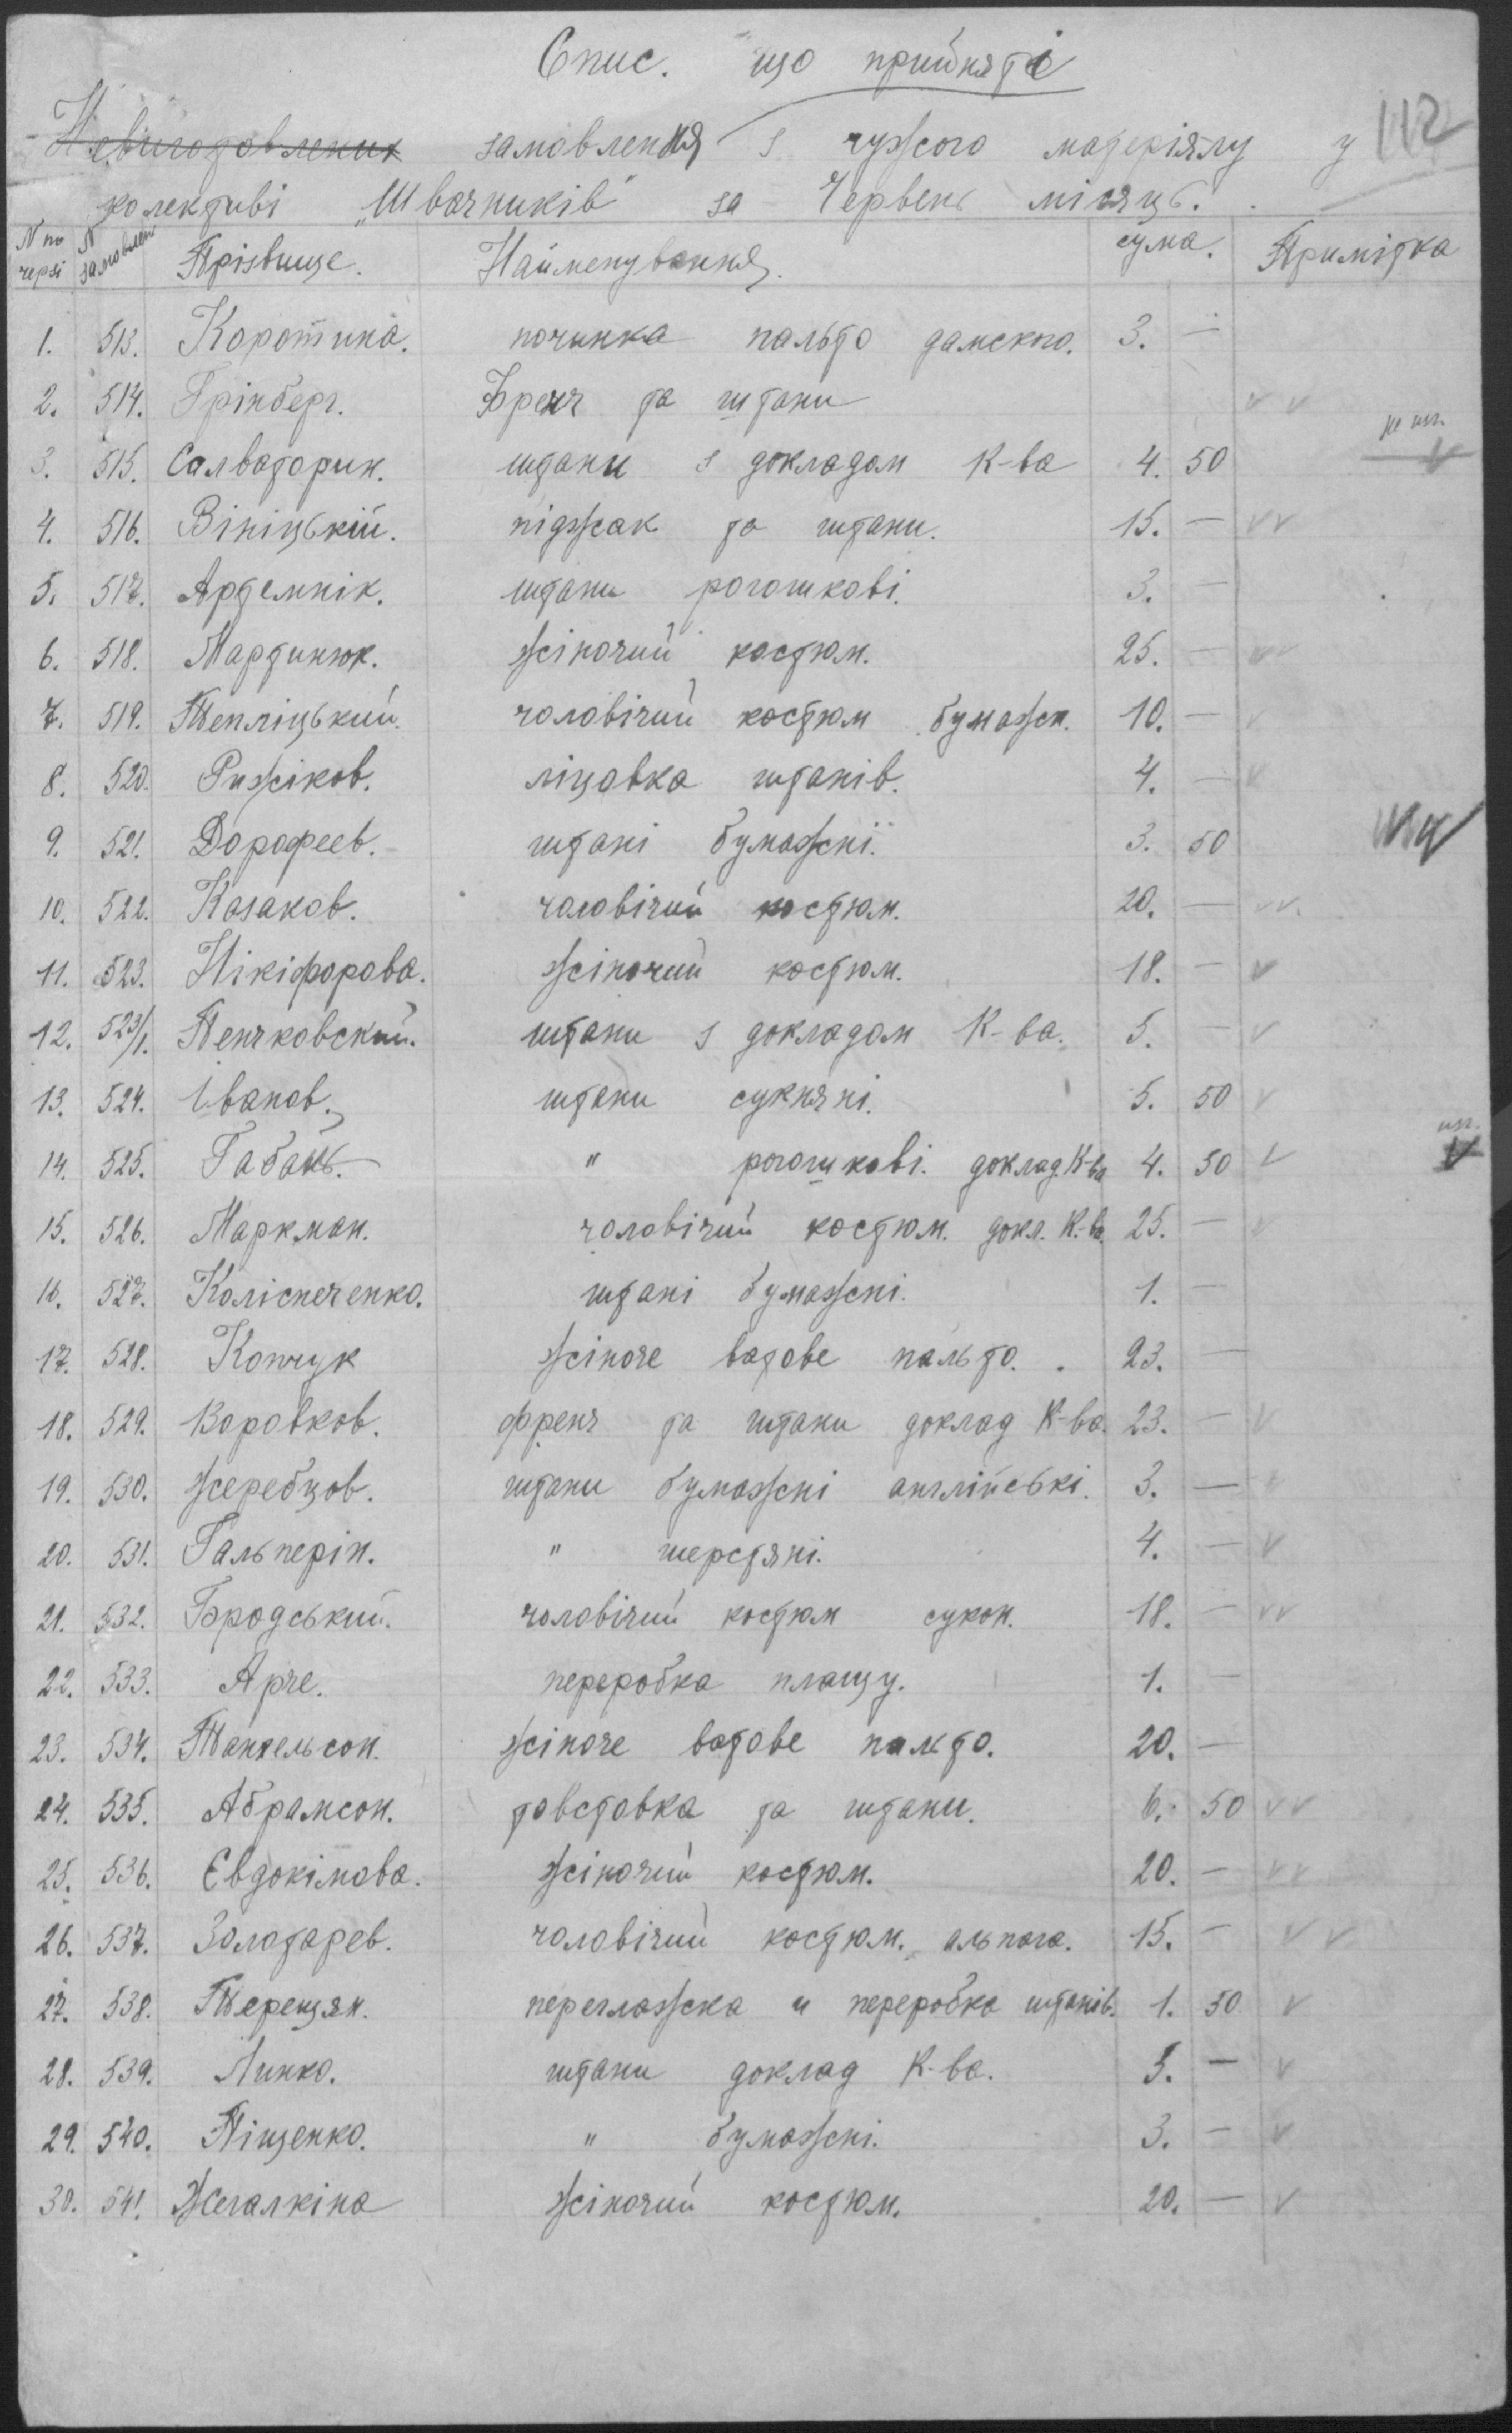 Спис. що прийняті
Невиготовлених замовлення з чужого матеріялу у 112
колективі „Швачників" за Червень місяць.
N по черзі N замовлен Прізвище. Найменування. сума. Примітка
1. 513. Коротина. починка пальто дамского. 3. —
2. 514. Грінберг. Френч та штани v v
3. 515. Салваторин. штани з докладом К-ва 4. 50 v
4. 516. Вініцькій. піджак та штани. 15. — v v
5. 517. Артемнік. штани рогожкові. 3. —
6. 518. Мартинюк. жіночий костюм. 25. — v v
7. 519. Тепліцький. чоловічий костюм бумажн. 10. — v
8. 520. Рижіков. ліцовка штанів. 4. — v
9. 521. Дорофеев. штані бумажні. 3. 50
10. 522. Казаков. чоловічий костюм. 20. — v v
11. 523. Нікіфорова. жіночий костюм. 18. — v
12. 523/1. Пенчковский. штани з докладом К-ва. 5. — v
13. 524. Іванов. штани сукняні. 5. 50 v
14. 525. Габань. " рогошкові. доклад. К-ва 4. 50 v v
15. 526. Маркман. чоловічий костюм. докл. К-ва. 25. — v
16. 527. Коліснеченко. штані бумажні. 1. —
17. 528. Кончук жіноче ватове пальто. 23. —
18. 529. Воровков. френч та штани доклад К-ва. 23. — v
19. 530. Жеребцов. штани бумажні англійські. 3. — v
20. 531. Гальперін. " шерстяні. 4. — v
21. 532. Бродський. чоловічий костюм сукон. 18. — v v
22. 533. Арче. переробка плащу. 1. —
23. 534. Танхельсон. жіноче ватове пальто. 20. —
24. 535. Абрамсон. товстовка та штани. 6. 50 v v
25. 536. Євдокімова. жіночий костюм. 20. — v v
26. 537. Золотарев. чоловічий костюм. альпага. 15. — v v
27. 538. Терещян. перегладжка и переробка штанів. 1. 50 v
28. 539. Линко. штани доклад К-ва. 5. — v
29. 540. Піщенко. " бумажні. 3. — v
30. 541. Жегалкіна жіночий костюм. 20. — v